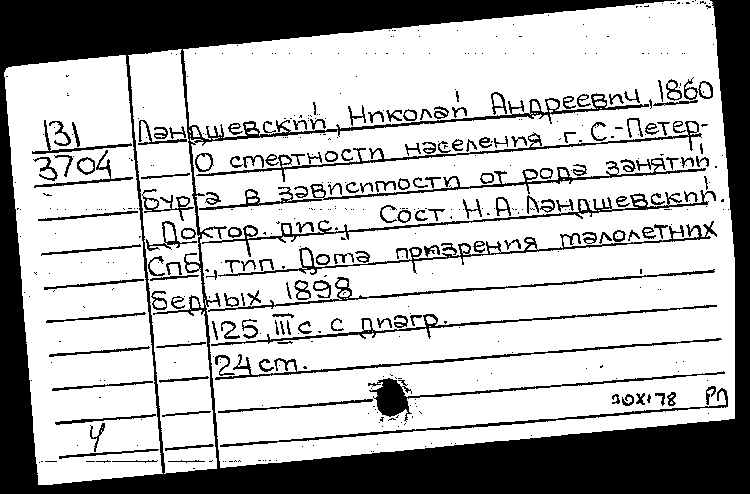 131 Ландшевский, Николай Андреевич, 1860
3704 О смертности населения г. С.-Петер-
бурга в зависимости от рода занятий.
[Доктор. дис.] Сост. Н. А. Ландшевский.
Спб., тип. Дома призрения малолетних
бедных, 1898.
125, III с. с диагр.
24 см.
30 XI 78 РП
Ч